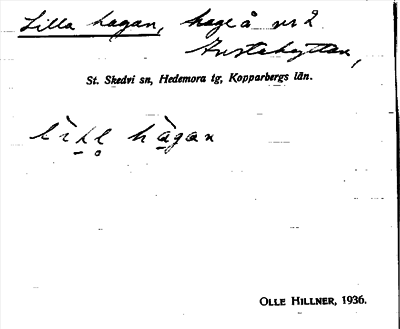 Lilla hagan, hage å nr 2
Anstahyttan,
St. Skedvi sn, Hedemora tg, Kopparbergs län.
hàgan
OLLE HILLNER, 1936.